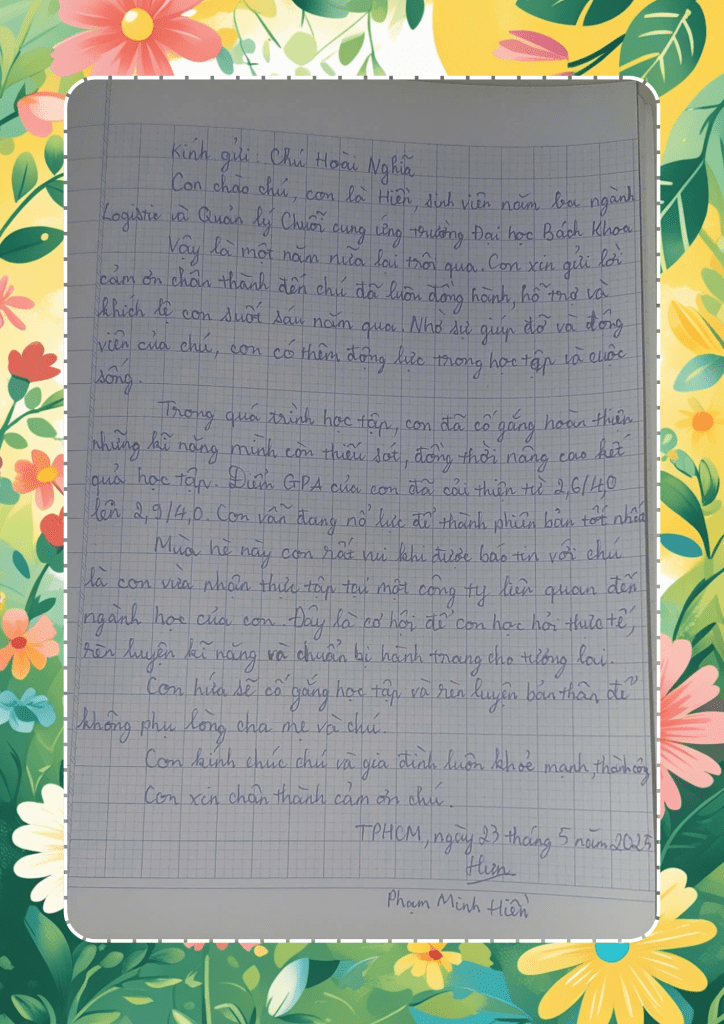 Kính gửi: Chú Hoài Nghĩa
Con chào chú, con là Hiền, sinh viên năm ba ngành
Logistic và Quản lý Chuỗi cung ứng trường Đại học Bách Khoa
Vậy là một năm nữa lại trôi qua. Con xin gửi lời
cảm ơn chân thành đến chú đã luôn đồng hành, hỗ trợ và
khích lệ con suốt sáu năm qua. Nhờ sự giúp đỡ và động
viên của chú, con có thêm động lực trong học tập và cuộc
sống.
Trong quá trình học tập, con đã cố gắng hoàn thiện
những kĩ năng mình còn thiếu sót, đồng thời nâng cao kết
quả học tập. Điểm GPA của con đã cải thiện từ 2,6/4,0
lên 2,9/4,0. Con vẫn đang nổ lực để thành phiên bản tốt nhất
Mùa hè này con rất vui khi được báo tin với chú
là con vừa nhận thực tập tại một công ty liên quan đến
ngành học của con. Đây là cơ hội để con học hỏi thực tế,
rèn luyện kĩ năng và chuẩn bị hành trang cho tương lai.
Con hứa sẽ cố gắng học tập và rèn luyện bản thân để
không phụ lòng cha mẹ và chú.
Con kính chúc chú và gia đình luôn khoẻ mạnh, thành công
Con xin chân thành cảm ơn chú.
TPHCM, ngày 23 tháng 5 năm 2025
Hiền
Phạm Minh Hiền